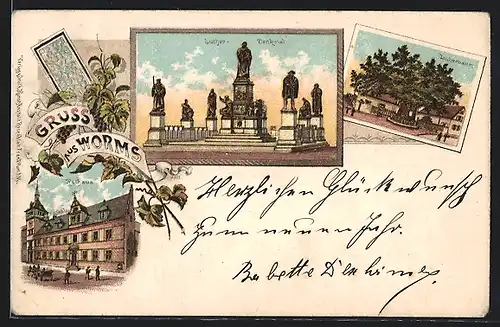 Luther-Denkmal
Lutherbaum
GRUSS
AUS WORMS
Rathaus
Herzlichen Glückwunsch
zum neuen Jahr.
Babette